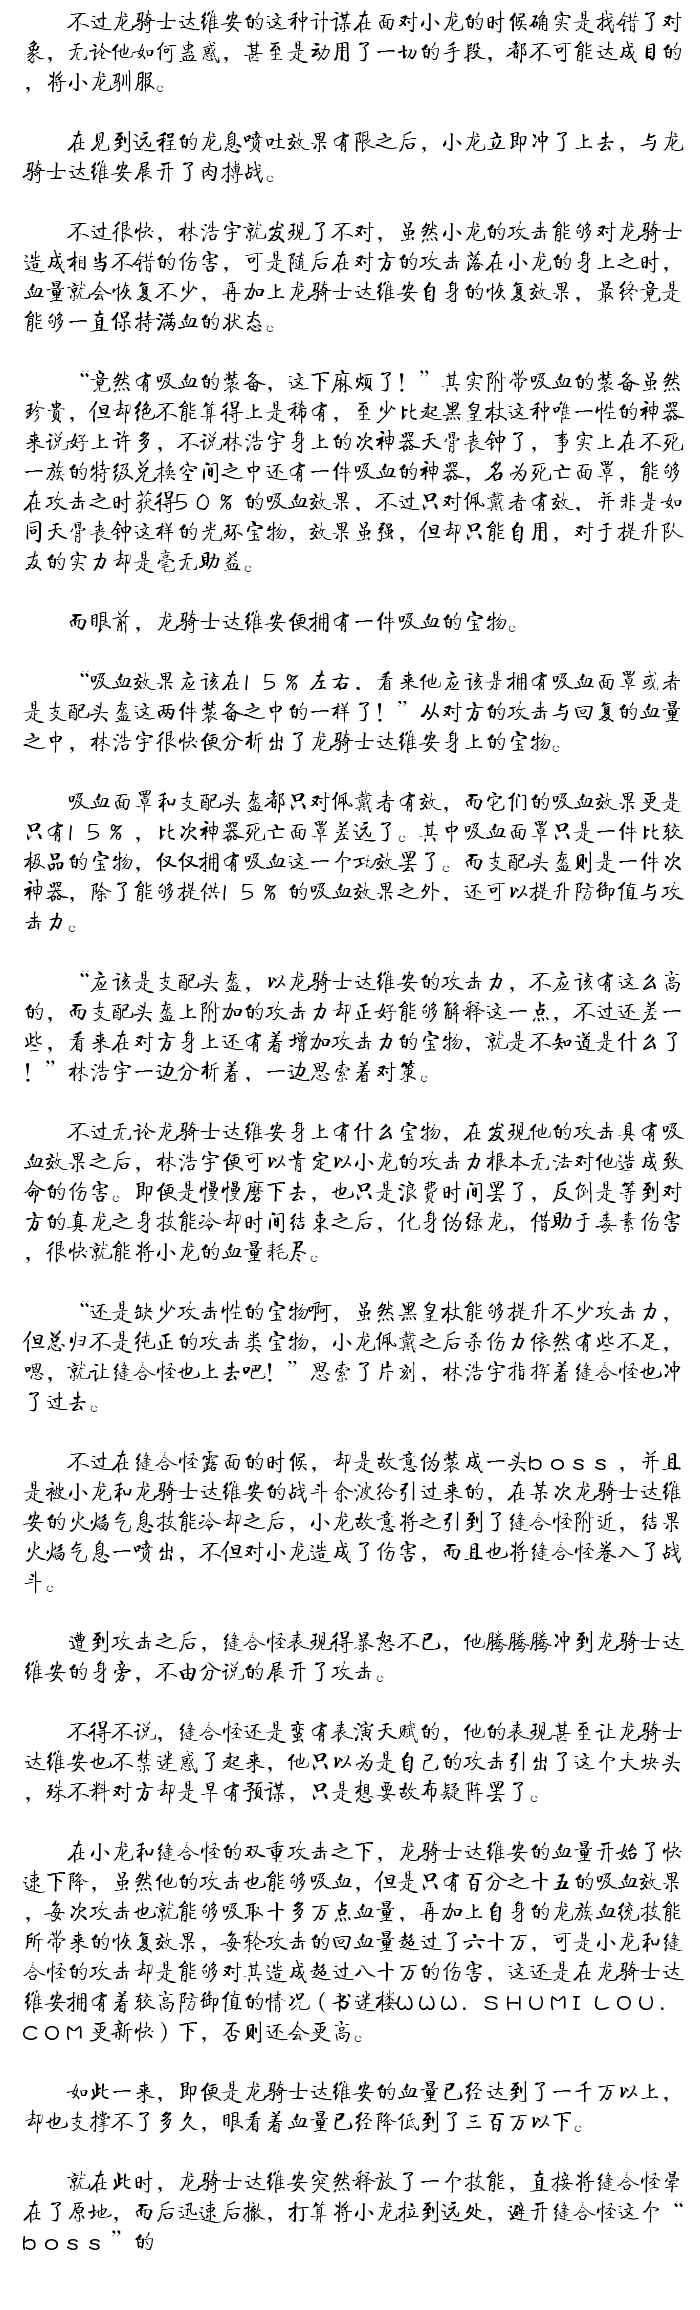 不过龙骑士达维安的这种计谋在面对小龙的时候确实是找错了对
象，无论他如何蛊惑，甚至是动用了一切的手段，都不可能达成目的
，将小龙驯服。
在见到远程的龙息喷吐效果有限之后，小龙立即冲了上去，与龙
骑士达维安展开了肉搏战。
不过很快，林浩宇就发现了不对，虽然小龙的攻击能够对龙骑士
造成相当不错的伤害，可是随后在对方的攻击落在小龙的身上之时，
血量就会恢复不少，再加上龙骑士达维安自身的恢复效果，最终竟是
能够一直保持满血的状态。
“竟然有吸血的装备，这下麻烦了！”其实附带吸血的装备虽然
珍贵，但却绝不能算得上是稀有，至少比起黑皇杖这种唯一性的神器
来说好上许多，不说林浩宇身上的次神器天骨丧钟了，事实上在不死
一族的特级兑换空间之中还有一件吸血的神器，名为死亡面罩，能够
在攻击之时获得50%的吸血效果，不过只对佩戴者有效，并非是如
同天骨丧钟这样的光环宝物，效果虽强，但却只能自用，对于提升队
友的实力却是毫无助益。
而眼前，龙骑士达维安便拥有一件吸血的宝物。
“吸血效果应该在15%左右，看来他应该是拥有吸血面罩或者
是支配头盔这两件装备之中的一样了！”从对方的攻击与回复的血量
之中，林浩宇很快便分析出了龙骑士达维安身上的宝物。
吸血面罩和支配头盔都只对佩戴者有效，而它们的吸血效果更是
只有15%，比次神器死亡面罩差远了。其中吸血面罩只是一件比较
极品的宝物，仅仅拥有吸血这一个功效罢了。而支配头盔则是一件次
神器，除了能够提供15%的吸血效果之外，还可以提升防御值与攻
击力。
“应该是支配头盔，以龙骑士达维安的攻击力，不应该有这么高
的，而支配头盔上附加的攻击力却正好能够解释这一点，不过还差一
些，看来在对方身上还有着增加攻击力的宝物，就是不知道是什么了
！”林浩宇一边分析着，一边思索着对策。
不过无论龙骑士达维安身上有什么宝物，在发现他的攻击具有吸
血效果之后，林浩宇便可以肯定以小龙的攻击力根本无法对他造成致
命的伤害。即便是慢慢磨下去，也只是浪费时间罢了，反倒是等到对
方的真龙之身技能冷却时间结束之后，化身伪绿龙，借助于毒素伤害
，很快就能将小龙的血量耗尽。
“还是缺少攻击性的宝物啊，虽然黑皇杖能够提升不少攻击力，
但总归不是纯正的攻击类宝物，小龙佩戴之后杀伤力依然有些不足，
嗯，就让缝合怪也上去吧！”思索了片刻，林浩宇指挥着缝合怪也冲
了过去。
不过在缝合怪露面的时候，却是故意伪装成一头boss，并且
是被小龙和龙骑士达维安的战斗余波给引过来的，在某次龙骑士达维
安的火焰气息技能冷却之后，小龙故意将之引到了缝合怪附近，结果
火焰气息一喷出，不但对小龙造成了伤害，而且也将缝合怪卷入了战
斗。
遭到攻击之后，缝合怪表现得暴怒不已，他腾腾腾冲到龙骑士达
维安的身旁，不由分说的展开了攻击。
不得不说，缝合怪还是蛮有表演天赋的，他的表现甚至让龙骑士
达维安也不禁迷惑了起来，他只以为是自己的攻击引出了这个大块头
，殊不料对方却是早有预谋，只是想要故布疑阵罢了。
在小龙和缝合怪的双重攻击之下，龙骑士达维安的血量开始了快
速下降，虽然他的攻击也能够吸血，但是只有百分之十五的吸血效果
，每次攻击也就能够吸取十多万点血量，再加上自身的龙族血统技能
所带来的恢复效果，每轮攻击的回血量超过了六十万，可是小龙和缝
合怪的攻击却是能够对其造成超过八十万的伤害，这还是在龙骑士达
维安拥有着较高防御值的情况（书迷楼WWW．SHUMILOU．
COM更新快）下，否则还会更高。
如此一来，即便是龙骑士达维安的血量已经达到了一千万以上，
却也支撑不了多久，眼看着血量已经降低到了三百万以下。
就在此时，龙骑士达维安突然释放了一个技能，直接将缝合怪晕
在了原地，而后迅速后撤，打算将小龙拉到远处，避开缝合怪这个“
boss”的